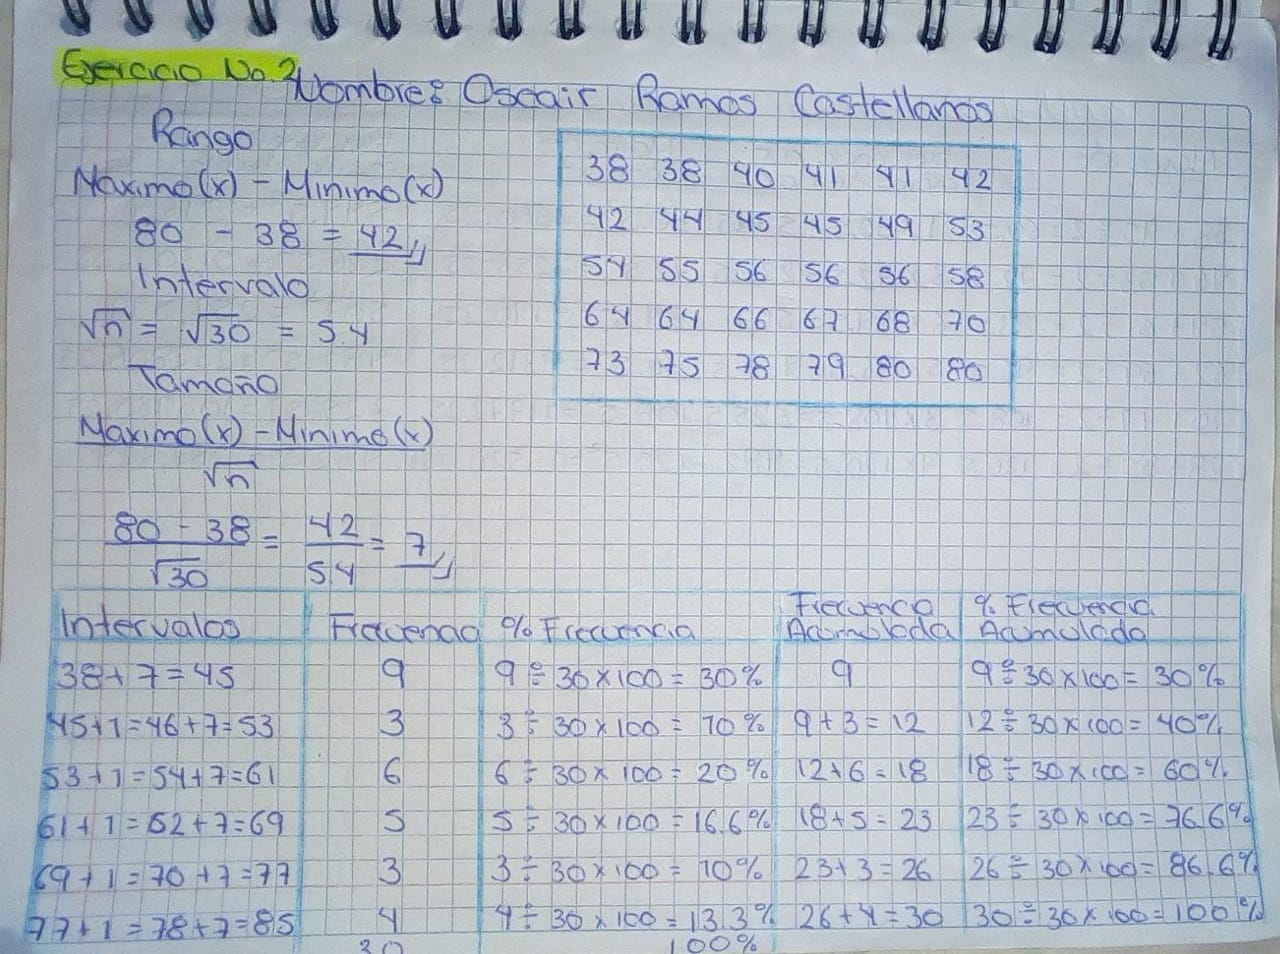 Ejercicio No.2 Nombre: Oscair Ramos Castellanos
Rango
Maximo(x) - Minimo(x)
80 - 38 = 42
Intervalo
√n = √30 = 5.4
Tamaño
Maximo(x) - Minimo(x)
√n
80 - 38 = 42 = 7
√30 54
38 38 40 41 41 42
42 44 45 45 49 53
54 55 56 56 56 58
64 64 66 67 68 70
73 75 78 79 80 80
Intervalos Frecuencia % Frecuencia Frecuenca Acumulada % Frecuencia Acumulada
38+7=45 9 9÷30×100=30% 9 9÷30×100=30%
45+1=46+7=53 3 3÷30×100=10% 9+3=12 12÷30×100=40%
53+1=54+7=61 6 6÷30×100=20% 12+6=18 18÷30×100=60%
61+1=62+7=69 5 5÷30×100=16.6% 18+5=23 23÷30×100=76.6%
69+1=70+7=77 3 3÷30×100=10% 23+3=26 26÷30×100=86.6%
77+1=78+7=85 4 4÷30×100=13.3% 26+4=30 30÷30×100=100%
30 100%